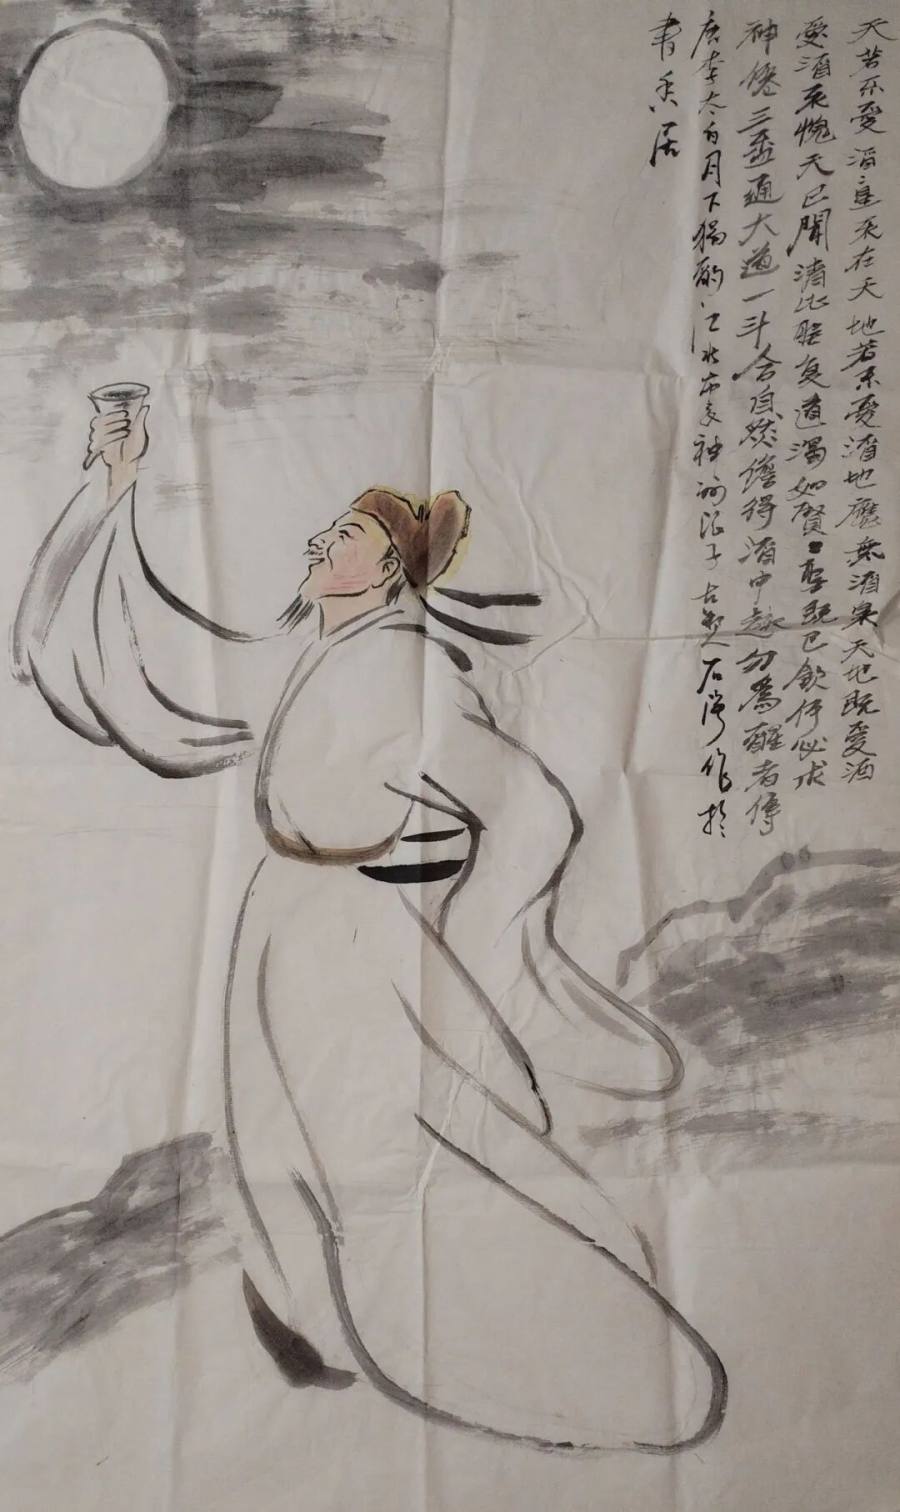 天若不愛酒酒星不在天地若不愛酒地應無酒泉天地既愛酒
愛酒不愧天已聞清比聖復道濁如賢賢聖既已飲何必求
神僊三盃通大道一斗合自然儋得酒中趣勿為醒者傳
唐李太白月下獨酌 子古 人石 作於
書香居